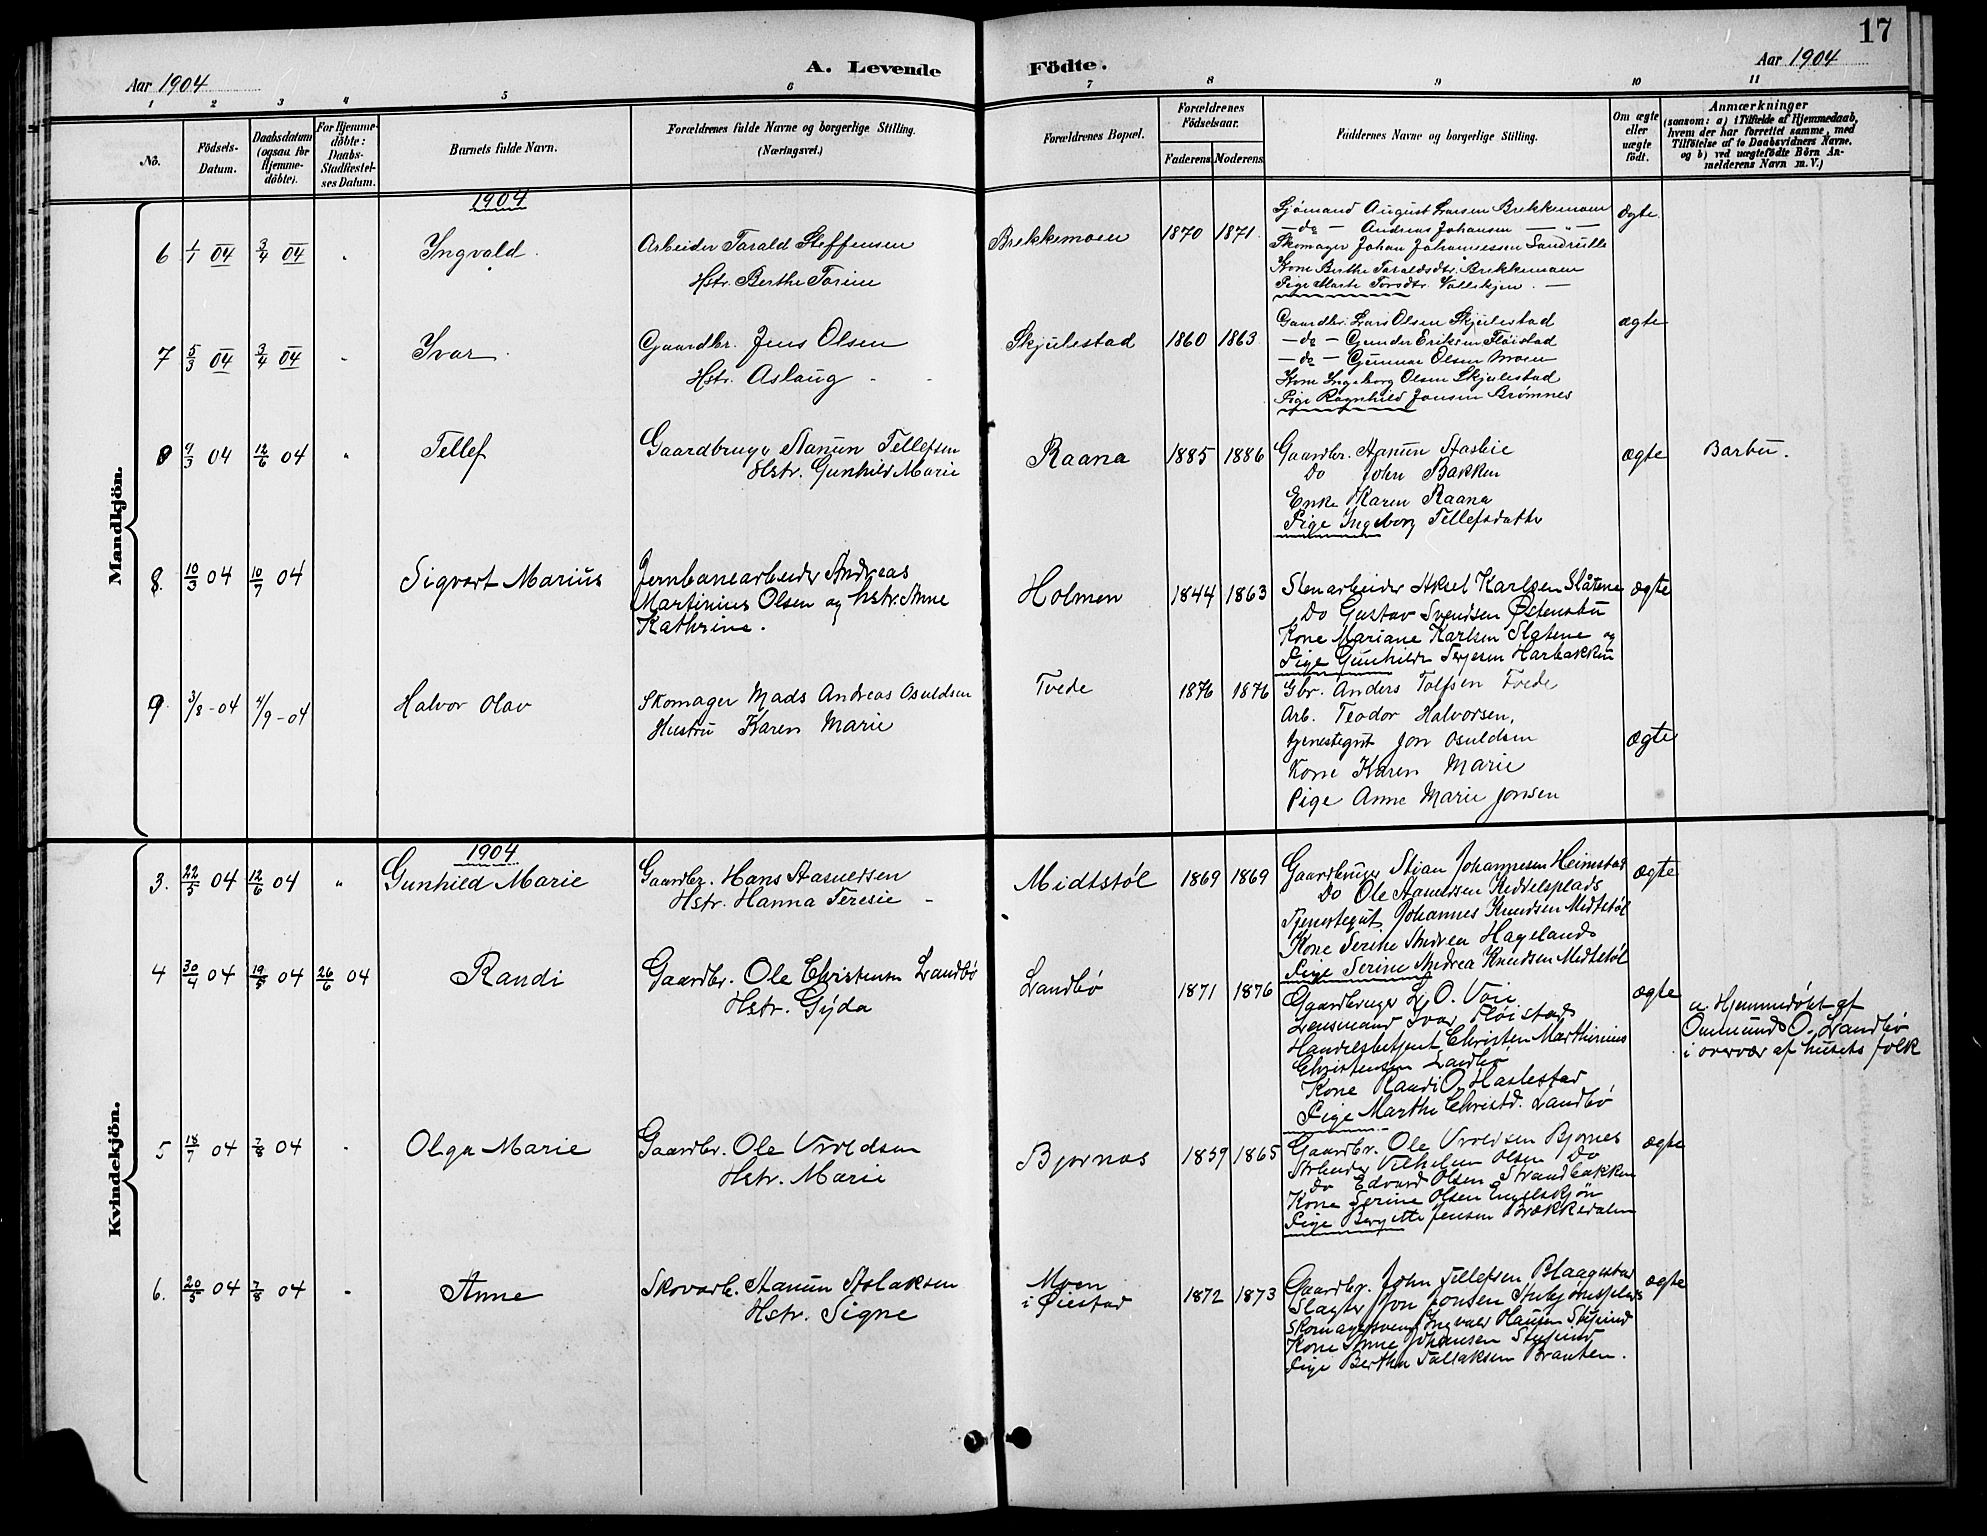 17
Aar 1904
A. Levende
Födte.
Aar 1904
1 2 3 4 5 6 7 8 9 10 11
No.
Födsels-
Datum.
Daabsdatum
(ogsaa for
Hjemme-
döbte).
For Hjemme-
döbte:
Daabs-
Stadfæstel-
ses Datum.
Barnets fulde Navn.
Forældrenes fulde Navne og borgerlige Stilling.
(Næringsvei.)
Forældrenes Bopæl.
Forældrenes
Födselsaar.
Faderens.
Moderens.
Faddernes Navne og borgerlige Stilling.
Om ægte
eller
uægte
födt.
Anmærkninger
(saasom: a) i Tilfælde af Hjemmedaab,
hvem der har forrettet samme, med
Tilföielse af to Daabsvidners Navne,
og b) ved uægtefödte Börn An-
melderens Navn m. V.)
Mandkjön.
1904
6 1/1 04 3/4 04 " Ingvald.
Arbeider Tarald Steffensen
Hstr. Berthe Torine
Brekkemoen 1870 1871
Sjömand August Larsen Brekkemoen
— do — Andreas Johansen — " —
Skomager Johan Johannessen
Kone Berthe Taraldsdtr. Brekkemoen
Pige Marte Torsdtr.
Ægte.
7 5/3 04 3/4 04 " Ivar.
Gaardbr. Jens Olsen
Hstr. Aslaug
Skjulestad 1860 1863
Gaardbr. Lars Olsen Skjulestad
— do — Gunder Eriksen Flöistad
— do — Gunnar Olsen Moen
Kone Ingeborg Olsen Skjulestad
Pige Ragnhild Jonsen Brømnes
ægte
8 9/3 04 12/6 04 " Tellef
Gaardbruger Aanun Tellefsen
Hstr. Gunhild Marie
Raana 1885 1886
Gaardbr. Aanun
Do John Bakken
Enke Karen Raana
Pige Ingeborg Tellefsdatter
ægte
Barbu.
8. 10/3 04 10/7 04 Sigvart Marius
Jernbanearbeider Andreas
Martinius Olsen og hstr. Anne
Kathrine.
Holmen 1844 1863
Stenarbeider Aksel Karlsen Slåtene
Do Gustav Svendsen Østenstu
Kone Mariane Karlsen Slåtene og
Pige Gunhilde Terjesen Harbakken
ægte
9 3/8-04 4/9-04 Halvor Olav
Skomager Mads Andreas Osuldsen
Hustru Karen Marie
Tvede 1876 1876
Gbr. Anders Tolfsen Tvede
Arb. Teodor Halvorsen,
tjenestegut Jon Osuldsen
Kone Karen Marie
Pige Anne Marie Jonsen
ægte
Kvindekjön.
1904
3. 22/5 04 12/6 04 " Gunhild Marie
Gaardbr. Hans Aanensen
Hstr. Hanna Teresie
Midtstøl 1869 1869
Gaardbruger Stian Johannesen Heimstad
Do Ole Aanensen Keddelsplads
Tjenestegut Johannes Knudsen Midtstøl
Kone Serine Andrea Hageland
Pige Serine Andrea Knudsen Midtstøl
ægte
4 30/4 04 19/5 04 26/6 04 Randi
Gaardbr. Ole Christensen Landbö
Hstr. Gyda
Landbö 1871 1876
Gaardbruger O. Voie
Lensmand Ivar Flöistad
Handelsbetjent Christen Marthinius
Christensen Landbö
Kone Randi O. Haslestad
Pige Marthe Christd. Landbö
ægte
a. Hjemmedöbt af
Ommund O. Landbö
i overvær af husets folk
5 18/7 04 7/8 04 " Olga Marie
Gaardbr. Ole Vroldsen
Hstr. Marie
Bjornes 1859 1865
Gaardbr. Ole Vroldsen Bjornes
Arbeider Vilhelm Olsen Do
Do Edvard Olsen Strandbakken
Kone Serine Olsen Engelskjön
Pige Bergitte Jensen Brækkedalen
ægte
6. 20/5 04 7/8 04 " Anne
Skovarb. Aanun Aslaksen
Hstr. Signe
Moen
i Öiestad 1872 1873
Gaardbr. John Tellefsen Blaagestad
Slagter Jon Jonsen
Skomagersvend Ingvald Hansen
Kone Anne Johansen
Pige Berthe Tallaksen Brauten.
ægte